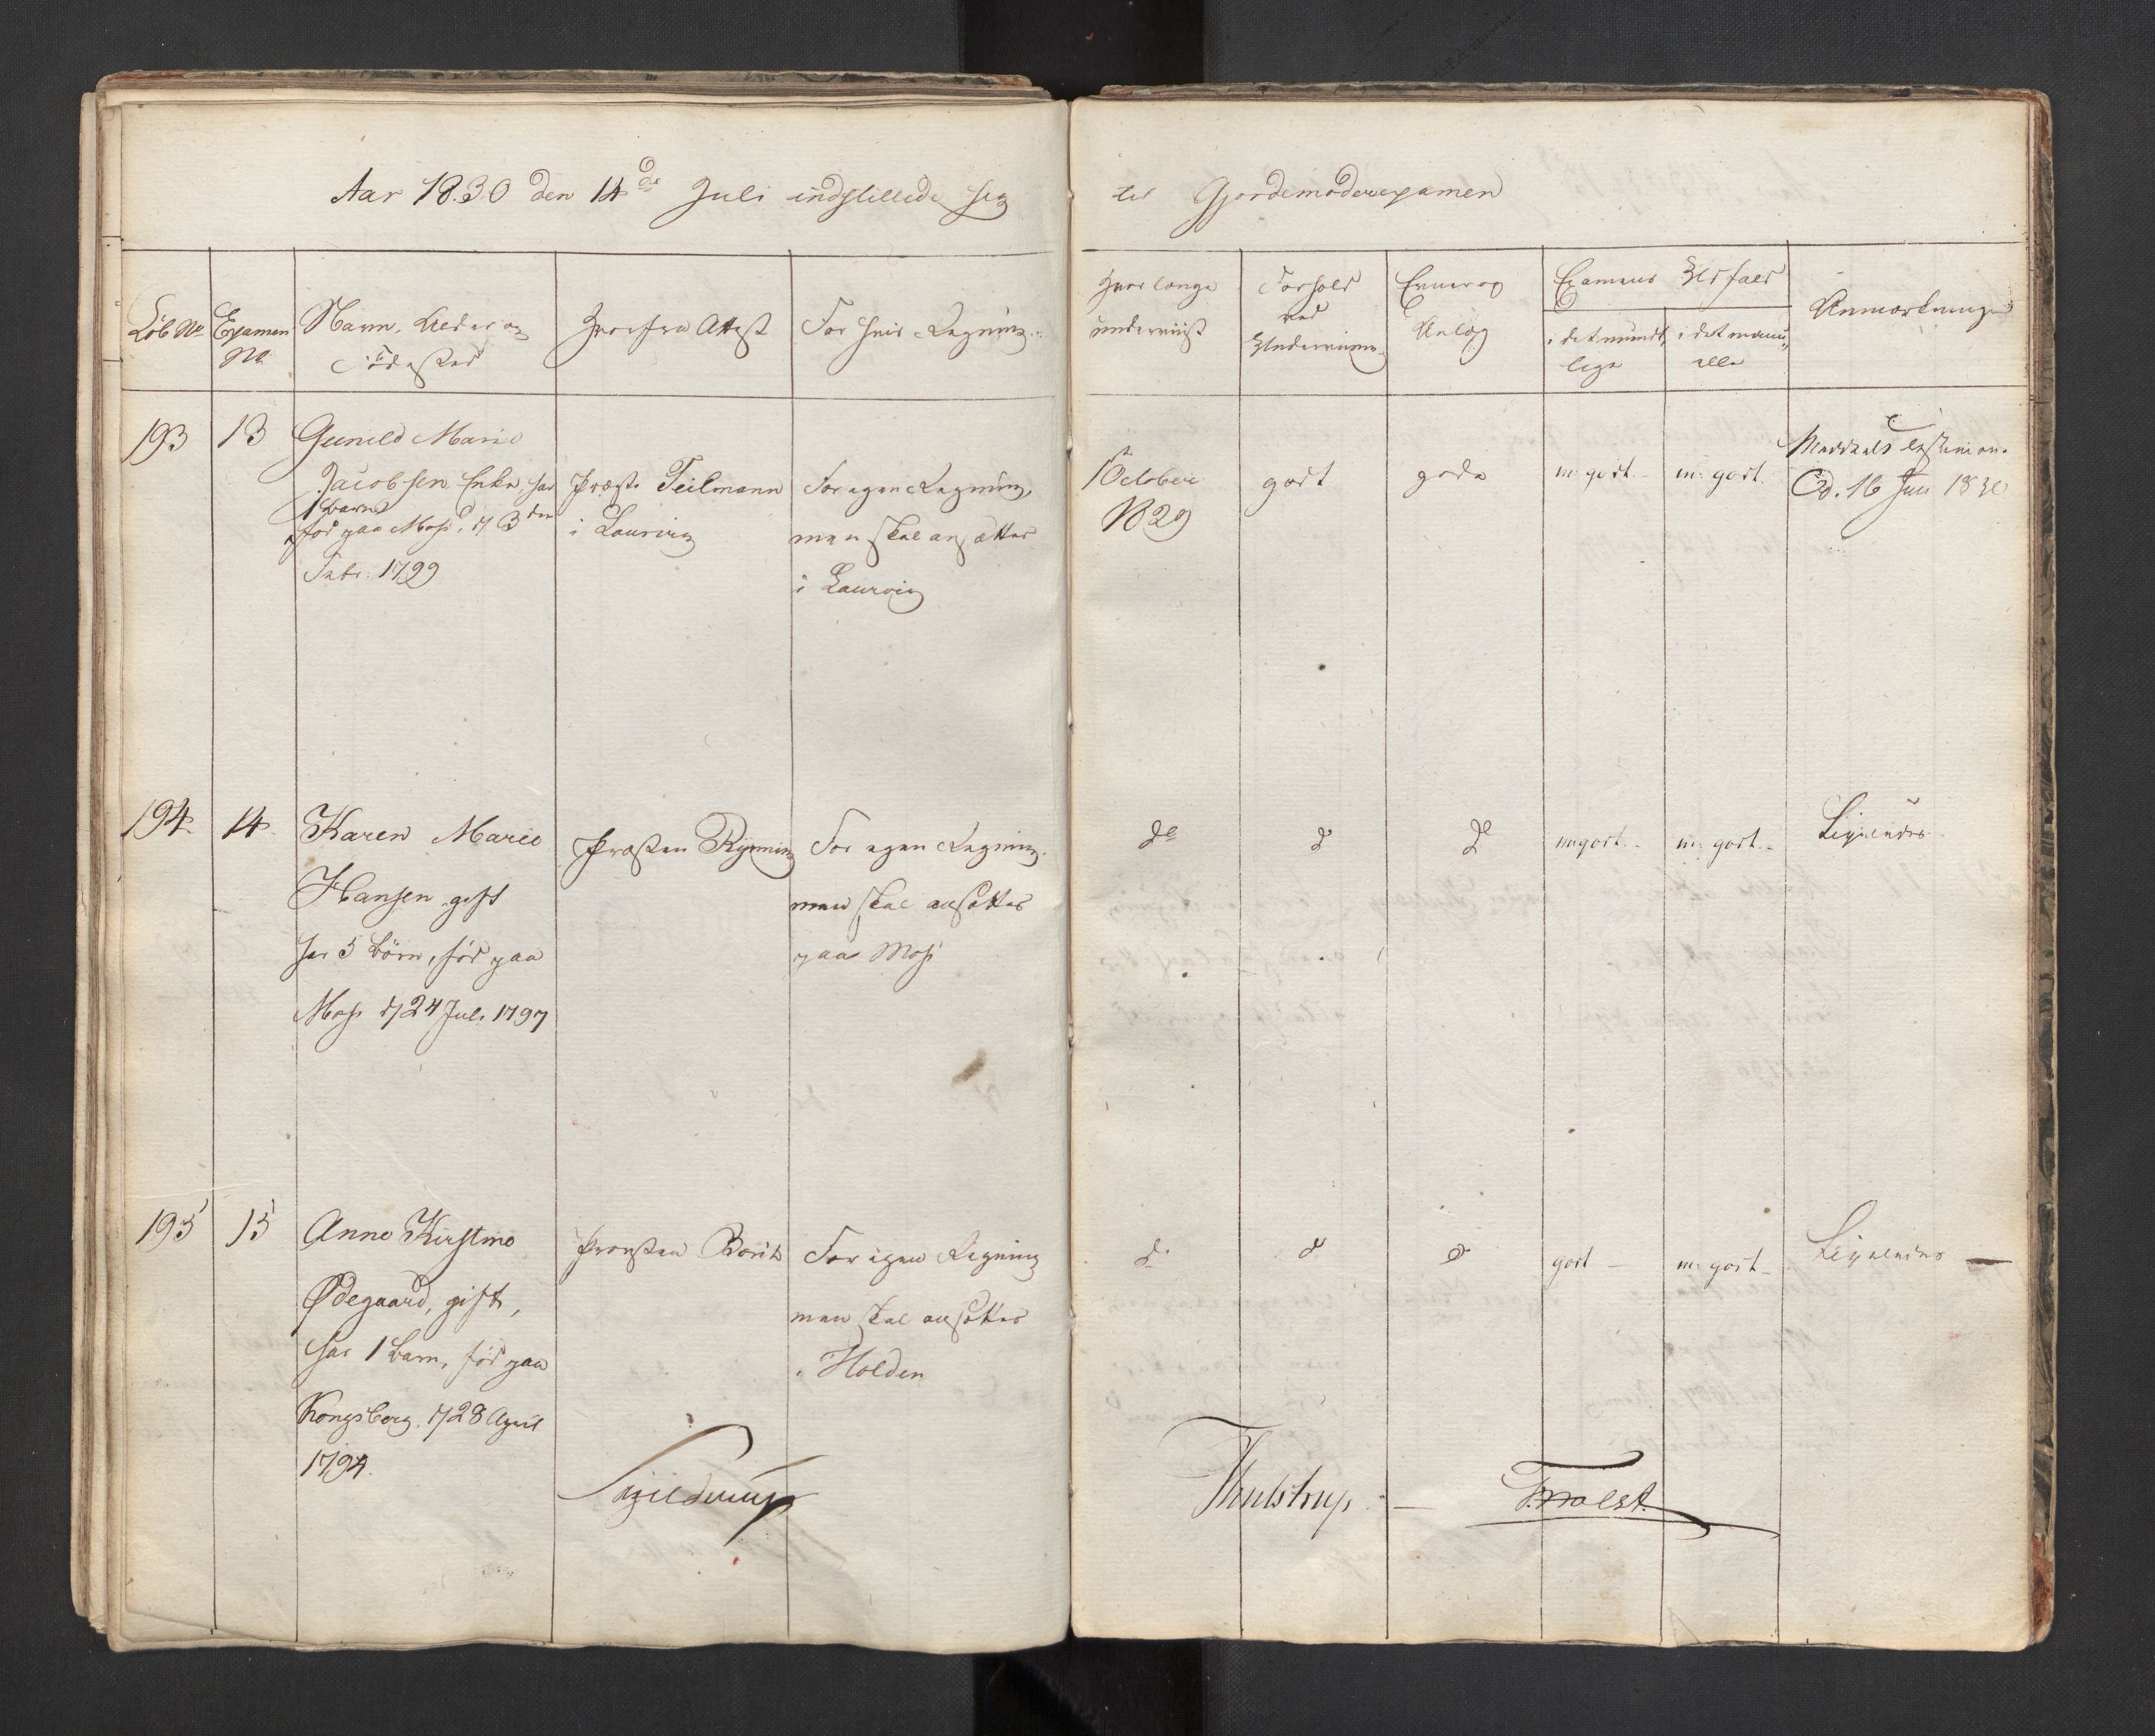 Aar 1830 den 14de Juli indstillede sig
til Gjordemoderexamen
Löb No
Examen
No
Navn, Alder og
Födested
Hvorfra Attest
For hvis Regning
Hvor længe
underviist
Forhold
ved
Underviisn.
Evner og
Anlæg
Examens Udfald
i det mündt,,
lige
i det manu,,
elle
Anmærkninger
193
13
Gunild Marie
Jacobsen Enke har
1 Barn
fød paa Moss d. 3den
Febr. 1799
Præsten Teilmann
i Laurvig
For egen Regning,
men skal ansættes
i Laurvig
1 October
1829
godt
gode
m: godt.
m: godt.
Meddeelt Testimon.
Ed. 16 Juli 1830
194
14
Karen Marie
Hansen gift
har 5 börn, född paa
Moss d. 24 Juli 1797
Præsten Rynning
For egen Regning.
men skal ansættes
paa Moss
do
do
do
m godt.
m: godt.
Ligeledes
195
15
Anne Kirstine
Ødegaard, gift,
har 1 barn, född paa
Kongsberg. d. 28 April
1794.
Provsten
For egen Regning
men skal ansættes
i Holden
do
do
do
godt
m: godt
Ligeledes
Thulstrup
F. Holst.